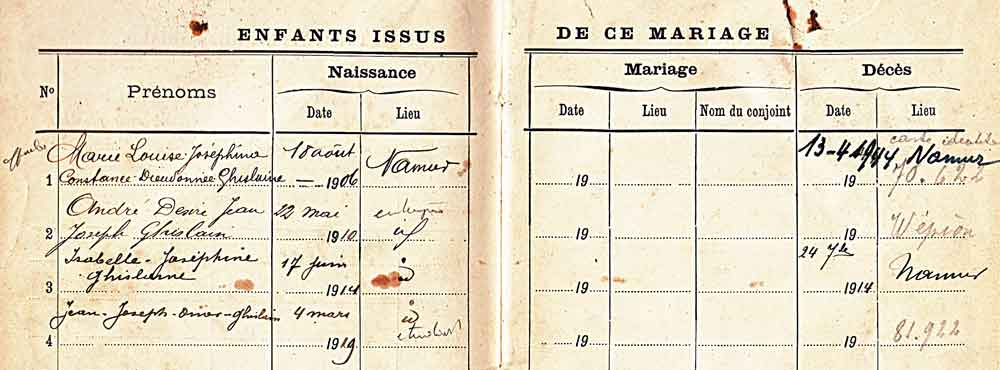 ENFANTS ISSUS DE CE MARIAGE
Naissance Mariage Décès
No Prénoms Date Lieu Date Lieu Nom du conjoint Date Lieu
Marie Louise Joséphine 18 août Namur 13-4-1944 carte identité Namur
1 Constance Dieudonnée Ghislaine — 1906 19 19 70.622
André Desiré Jean 22 mai
2 Joseph Ghislain 1910 id 19 19 Wépion
Isabelle-Joséphine 17 juin id 24 7bre Namur
Ghislaine
3 1914 19 1914
Jean-Joseph-Omer-Ghislain 4 mars id
étudiant
4 1919 19 19 81.922